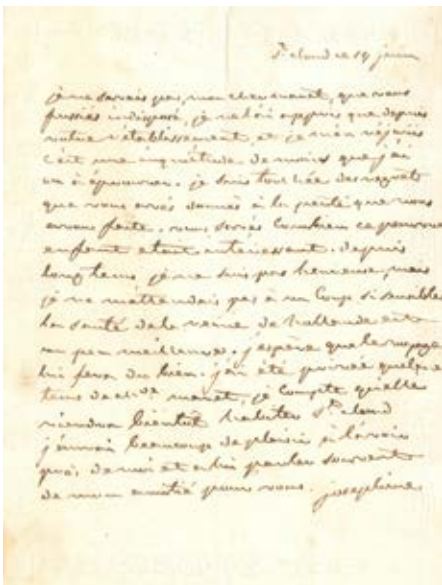 St cloud ce 19 juin
je ne savais pas, mon cher manet, que vous
fussiés indisposé, je ne l'ai appris que depuis
votre rétablissement, et je m'en réjouis
c'est une inquiétude de moins que j'ai
eu à éprouver. je suis touchée des regrets
que vous avés donnés à la perte que nous
avons faite. vous savés combien ce pauvre
enfant étoit intéressant. depuis
longtems je ne suis pas heureuse, mais
je ne m'attendais pas à un coup si sensible
la santé de la reine de hollande est
un peu meilleure. j'espère que le voyage
lui fera du bien. j'ai été privée quelque
tems de md. manet, je compte qu'elle
viendra bientot habiter St. cloud
j'aurai beaucoup de plaisir à l'avoir
près de moi et à lui parler souvent
de mon amitié pour vous. joséphine